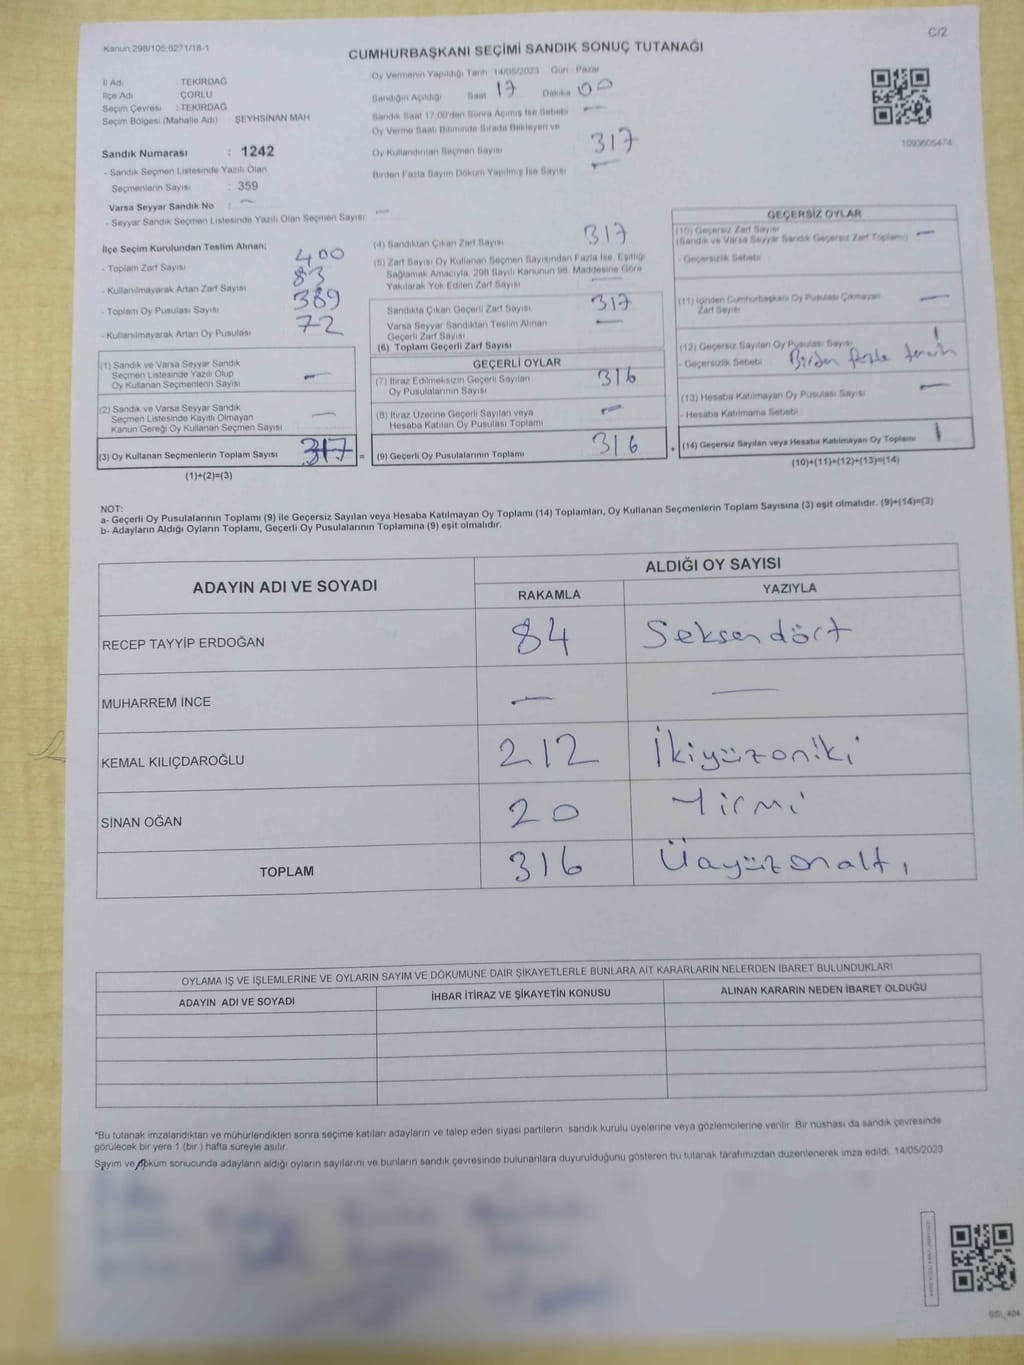 Kanun:298/105:6271/18-1
C/2
CUMHURBAŞKANI SEÇİMİ SANDIK SONUÇ TUTANAĞI
İl Adı : TEKİRDAĞ
İlçe Adı : ÇORLU
Seçim Çevresi : TEKİRDAĞ
Seçim Bölgesi (Mahalle Adı) ŞEYHSİNAN MAH
Sandık Numarası : 1242
- Sandık Seçmen Listesinde Yazılı Olan
Seçmenlerin Sayısı : 359
Varsa Seyyar Sandık No : -
- Seyyar Sandık Seçmen Listesinde Yazılı Olan Seçmen Sayısı -
Oy Vermenin Yapıldığı Tarih 14/05/2023 Gün Pazar
Sandığın Açıldığı Saat 17 Dakika 00
Sandık Saat 17.00'den Sonra Açımış İse Sebebi -
Oy Verme Saati Bitiminde Sırada Bekleyen ve
Oy Kullandırılan Seçmen Sayısı 317
Birden Fazla Sayım Döküm Yapılmış İse Sayısı -
1093605474
İlçe Seçim Kurulundan Teslim Alınan;
- Toplam Zarf Sayısı 400
- Kullanılmayarak Artan Zarf Sayısı 83
- Toplam Oy Pusulası Sayısı 389
- Kullanılmayarak Artan Oy Pusulası 72
(1) Sandık ve Varsa Seyyar Sandık
Seçmen Listesinde Yazılı Olup
Oy Kullanan Seçmenlerin Sayısı -
(2) Sandık ve Varsa Seyyar Sandık
Seçmen Listesinde Kayıtlı Olmayan
Kanun Gereği Oy Kullanan Seçmen Sayısı -
(3) Oy Kullanan Seçmenlerin Toplam Sayısı 317 =
(1)+(2)=(3)
(4) Sandıktan Çıkan Zarf Sayısı 317
(5) Zarf Sayısı Oy Kullanan Seçmen Sayısından Fazla İse, Eşitliği
Sağlamak Amacıyla, 298 Sayılı Kanunun 98. Maddesine Göre
Yakılarak Yok Edilen Zarf Sayısı -
Sandıkta Çıkan Geçerli Zarf Sayısı 317
Varsa Seyyar Sandıktan Teslim Alınan
Geçerli Zarf Sayısı -
(6) Toplam Geçerli Zarf Sayısı
GEÇERLİ OYLAR
(7) İtiraz Edilmeksizin Geçerli Sayılan
Oy Pusulasının Sayısı 316
(8) İtiraz Üzerine Geçerli Sayılan veya
Hesaba Katılan Oy Pusulası Toplamı -
(9) Geçerli Oy Pusulalarının Toplamı 316 +
GEÇERSİZ OYLAR
(10) Geçersiz Zarf Sayısı
(Sandık ve Varsa Seyyar Sandık Geçersiz Zarf Toplamı) -
- Geçersizlik Sebebi
(11) İçinden Cumhurbaşkanı Oy Pusulası Çıkmayan
Zarf Sayısı -
(12) Geçersiz Sayılan Oy Pusulası Sayısı 1
- Geçersizlik Sebebi Birden fazla tercih
(13) Hesaba Katılmayan Oy Pusulası Sayısı -
- Hesaba Katılmama Sebebi
(14) Geçersiz Sayılan veya Hesaba Katılmayan Oy Toplamı 1
(10)+(11)+(12)+(13)=(14)
NOT:
a- Geçerli Oy Pusulalarının Toplamı (9) ile Geçersiz Sayılan veya Hesaba Katılmayan Oy Toplamı (14) Toplamları, Oy Kullanan Seçmenlerin Toplam Sayısına (3) eşit olmalıdır. (9)+(14)=(3)
b- Adayların Aldığı Oyların Toplamı, Geçerli Oy Pusulalarının Toplamına (9) eşit olmalıdır.
ADAYIN ADI VE SOYADI ALDIĞI OY SAYISI
RAKAMLA YAZIYLA
RECEP TAYYİP ERDOĞAN 84 Seksendört
MUHARREM İNCE - -
KEMAL KILIÇDAROĞLU 212 İkiyüzoniki
SİNAN OĞAN 20 Yirmi
TOPLAM 316 Üçyüzonaltı
OYLAMA İŞ VE İŞLEMLERİNE VE OYLARIN SAYIM VE DÖKÜMÜNE DAİR ŞİKAYETLERLE BUNLARA AİT KARARLARIN NELERDEN İBARET BULUNDUKLARI
ADAYIN ADI VE SOYADI İHBAR İTİRAZ VE ŞİKAYETİN KONUSU ALINAN KARARIN NEDEN İBARET OLDUĞU
*Bu tutanak imzalandıktan ve mühürlendikten sonra seçime katılan adayların ve talep eden siyasi partilerin sandık kurulu üyelerine veya gözlemcilerine verilir. Bir nüshası da sandık çevresinde
görülecek bir yere 1 (bir ) hafta süreyle asılır.
Sayım ve döküm sonucunda adayların aldığı oyların sayılarını ve bunların sandık çevresinde bulunanlara duyurulduğunu gösteren bu tutanak tarafımızdan düzenlenerek imza edildi. 14/05/2023